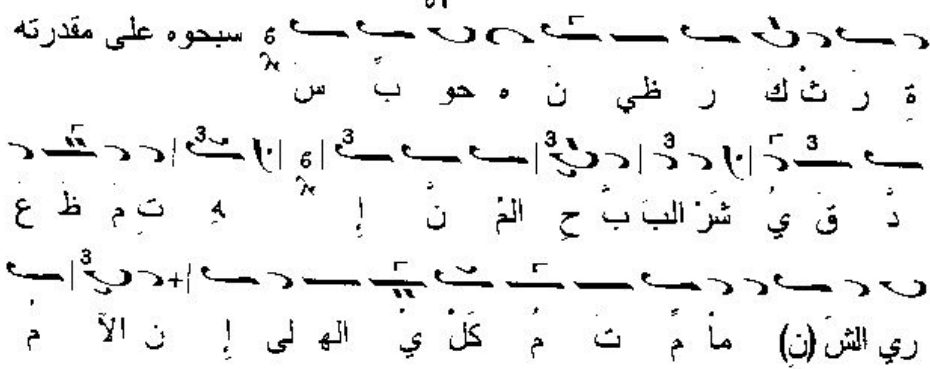 سبحوه على مقدرته
سَ بِّ حو ه نَ ظي رَ كَ ثْ رَ ةِ
عَ ظَ مَ تِ هِ إِ نَّ المُ حِ بَّ البَ شَرْ يُ قَ دَّ
مُ الآ ن إِ لى اله يْ كَلْ مُ تَ مِّ ماً (نِ) الشَ ري